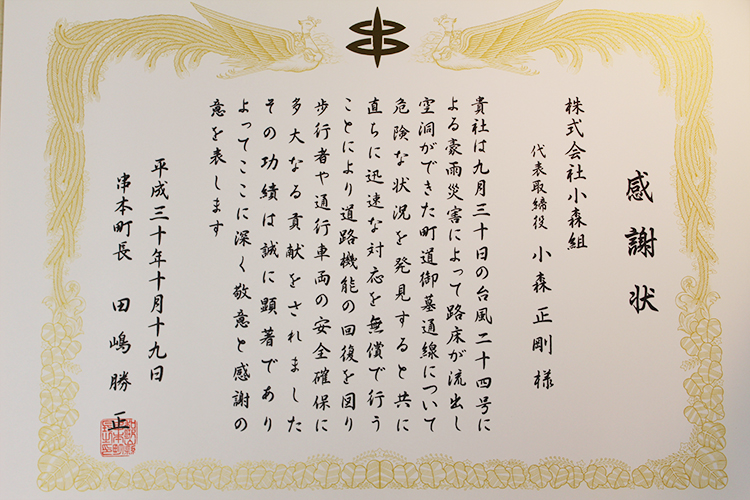 感謝状
株式会社小森組
代表取締役 小森正剛様
貴社は九月三十日の台風二十四号に
よる豪雨災害によって路床が流出し
空洞ができた町道御墓通線について
危険な状況を発見すると共に
直ちに迅速な対応を無償で行う
ことにより道路機能の回復を図り
歩行者や通行車両の安全確保に
多大なる貢献をされました
その功績は誠に顕著であり
よってここに深く敬意と感謝の
意を表します
平成三十年十月十九日
串本町長 田嶋勝正